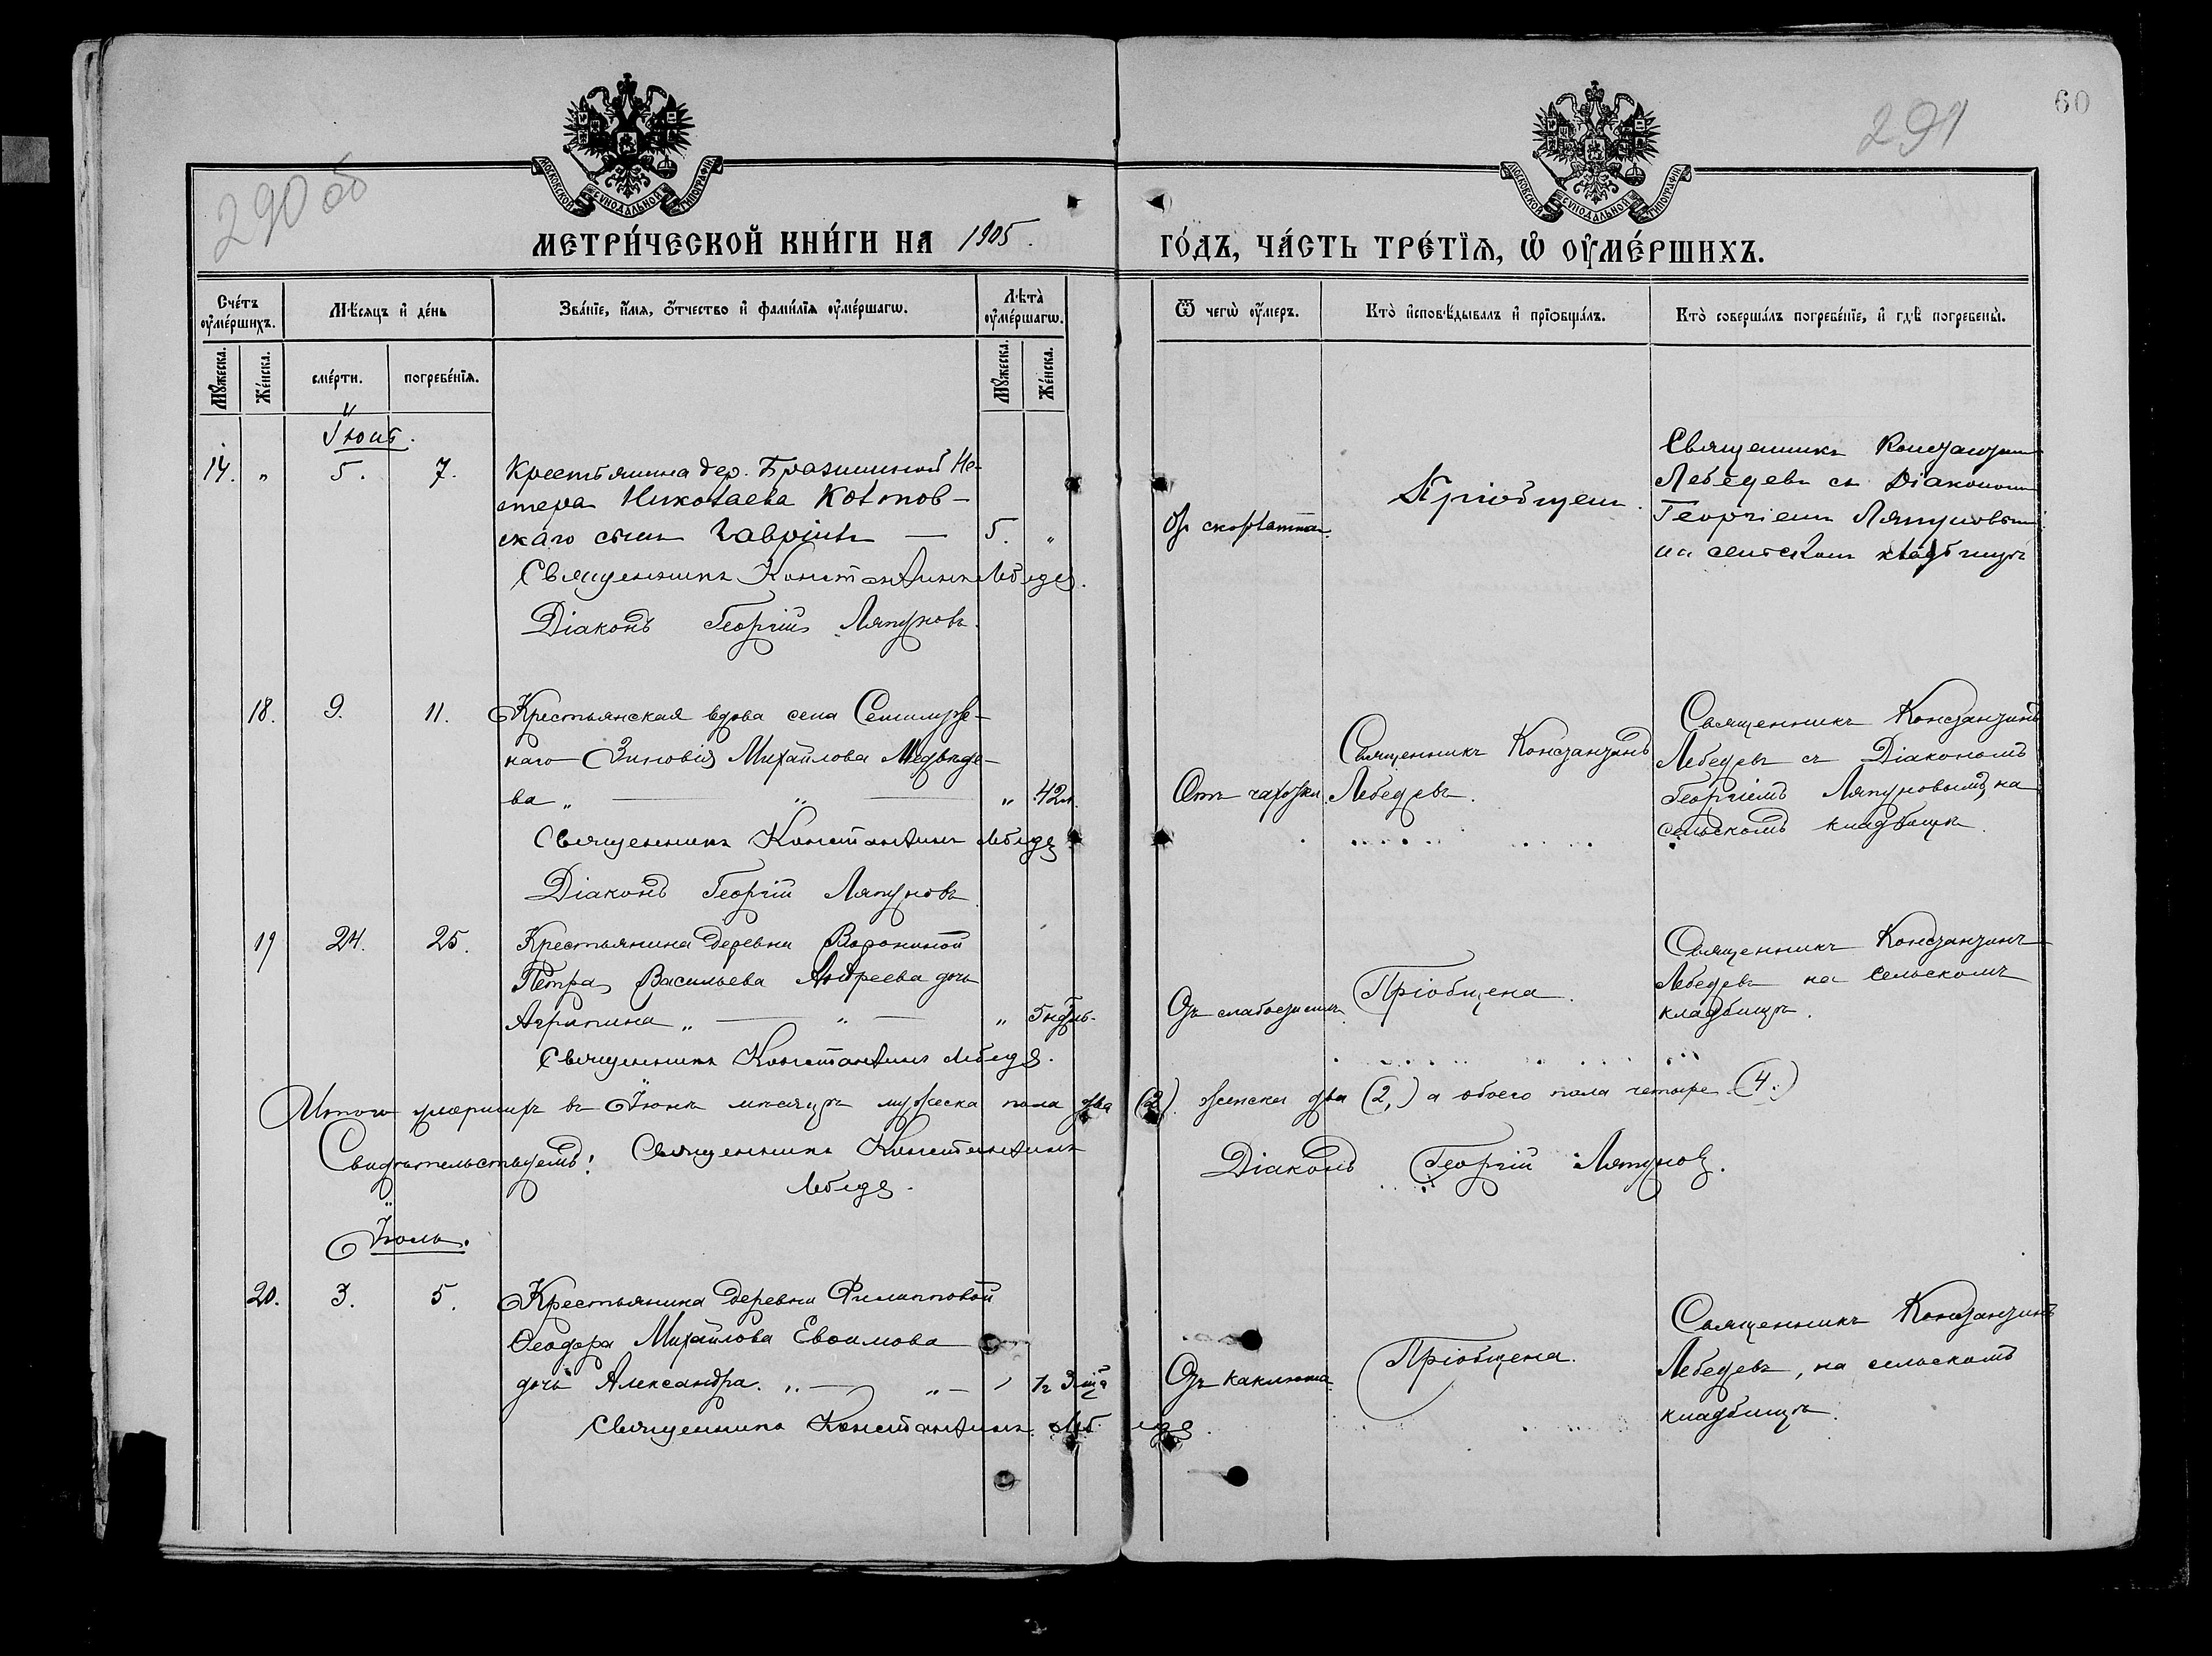 290 об
291
60
МОСКОВСКОЙ СѴНОДАЛЬНОЙ ТИПОГРАФІИ
МОСКОВСКОЙ СѴНОДАЛЬНОЙ ТИПОГРАФІИ
МЕТРИ́ЧЕСКОЙ КНИ́ГИ НА 1905.
ГО́ДЪ, ЧА́СТЬ ТРЕ́ТІѦ, Ѡ҆ ОУ҆МЕ́РШИХЪ.
Сче́тъ оу҆ме́ршихъ.
Мѣ́сяцъ и҆ де́нь
Зва́нїе, и҆́мя, ѻ҆́тчество и҆ фами́лїя оу҆ме́ршагѡ.
Лѣта̀ оу҆ме́ршагѡ.
Ѿ чегѡ̀ оу҆́меръ.
Кто̀ и҆сповѣ́дывалъ и҆ прїѡбща́лъ.
Кто̀ соверша́лъ погребе́нїе, и҆ гдѣ̀ погребены̀.
Мꙋ́жеска.
Же́нска.
сме́рти.
погребе́нїя.
Мꙋ́жеска.
Же́нска.
Іюнь.
14. „ 5. 7. Крестьянина дер. Не-
стера Николаева Котов-
скаго сынъ Гавріилъ — 5. „
Священникъ Константинъ Лебедев.
Діаконъ Георгій Ляпуновъ.
Пріобщенъ.
Священникъ Константинъ
Лебедевъ съ Діакономъ
Георгіемъ Ляпуновымъ
на сельскомъ кладбищѣ
18. 9. 11. Крестьянская вдова села
Зиновія Михайлова Медвѣде-
ва „ — „ — „ 42л.
Священникъ Константинъ Лебедев
Діаконъ Георгій Ляпуновъ
Отъ чахотки.
Священникъ Константинъ
Лебедевъ.
Священникъ Константинъ
Лебедевъ съ Діакономъ
Георгіемъ Ляпуновымъ, на
сельскомъ кладбищѣ.
19 24. 25. Крестьянина деревни Ворониной
Петра Васильева Андреева дочь
Агрипина „ — „ — „ 5 недѣль.
Священникъ Константинъ Лебедев.
Отъ слабости
Пріобщена.
Священникъ Константинъ
Лебедевъ на сельскомъ
кладбищѣ.
Итого умершихъ въ Іюнѣ мѣсяцѣ мужеска пола два (2) женска два (2,) а обоего пола четыре (4.)
Свидѣтельствуемъ: Священникъ Константинъ
Лебедев.
Діаконъ Георгій Ляпунов.
Іюль.
20. 3. 5. Крестьянина деревни Филипповой
Ѳеодора Михайлова Евѳимова
дочь Александра. „ — „ —
Священникъ Константинъ Лебедев.
Отъ коклюша.
Пріобщена.
Священникъ Константинъ
Лебедевъ, на сельскомъ
кладбищѣ.